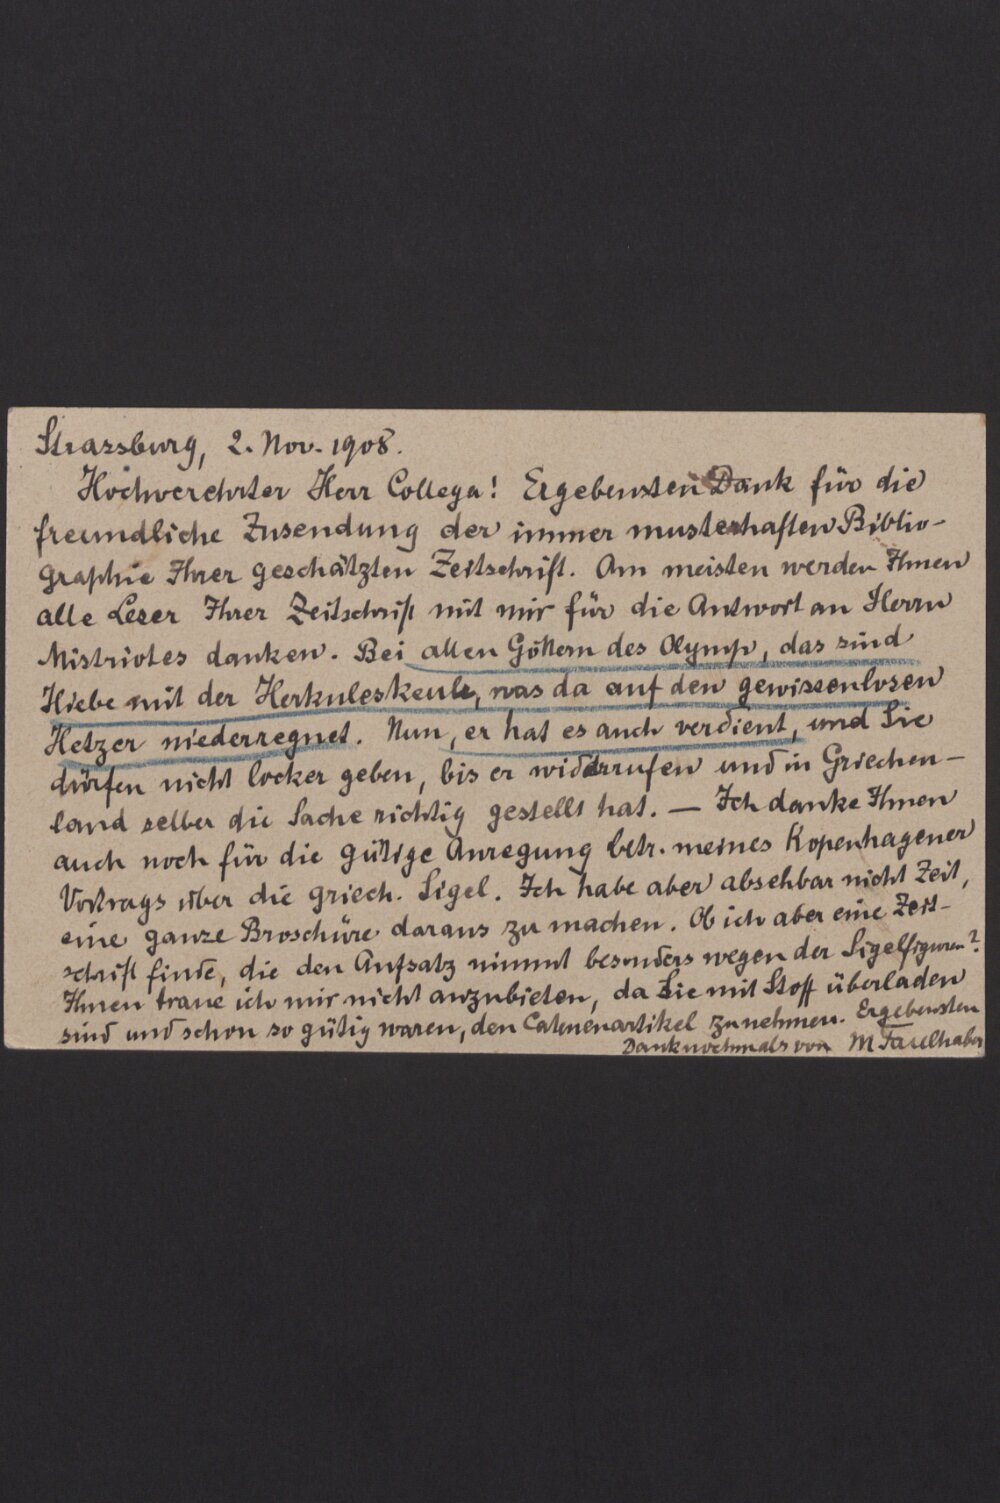 Strassburg, 2. Nov. 1908.
Hochverehrter Herr Collega! Ergebensten Dank für die
freundliche Zusendung der immer musterhaften Biblio-
graphie Ihrer geschätzten Zeitschrift. Am meisten werden Ihnen
alle Leser Ihrer Zeitschrift mit mir für die Antwort an Herrn
Mistriotes danken. Bei allen Göttern des Olymp, das sind
Hiebe mit der Herkuleskeule, was da auf den gewissenlosen
Hetzer niederregnet. Nun, er hat es auch verdient, und Sie
dürfen nicht locker geben, bis er widerrufen und in Griechen-
land selber die Sache richtig gestellt hat. — Ich danke Ihnen
auch noch für die gütige Anregung betr. meines Kopenhagener
Vortrags über die griech. Sigel. Ich habe aber absehbar nicht Zeit,
eine ganze Broschüre daraus zu machen. Ob ich aber eine Zeit-
schrift finde, die den Aufsatz nimmt besonders wegen der Sigelfiguren?
Ihnen traue ich mir nicht anzubieten, da Sie mit Stoff überladen
sind und schon so gütig waren, den Catenenartikel zu nehmen. Ergebensten
Dank nochmals von M Faulhaber